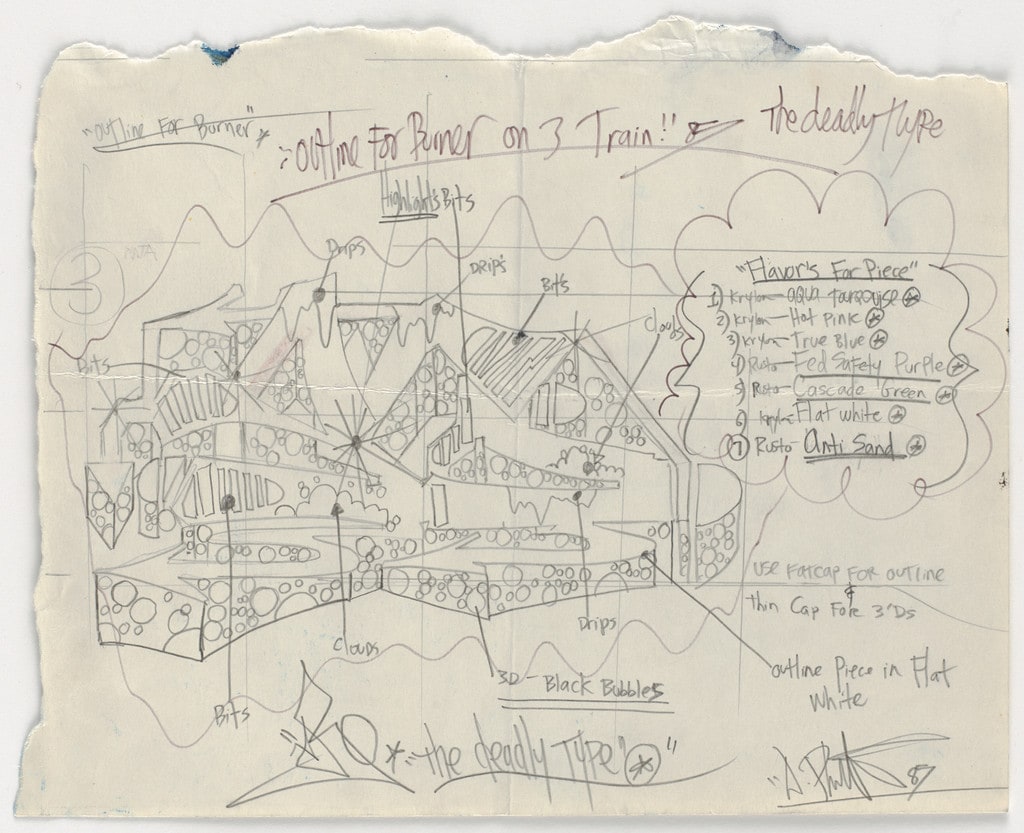 "outline For Burner" *
outline For Burner on 3 Train!!
The deadly type
Highlights Bits
Drips
Drip's
Bits
Clouds
3
MTA
Bits
"Flavor's For Piece"
1) Krylon— aqua Tourqouise
2) Krylon— Hot Pink
3) Krylon— True Blue
4) Rusto— Fed Safety Purple
5) Rusto— Cascade Green
6) Krylon— Flat white
7) Rusto Anti Sand
USE FATCAP FOR OUTLINE
&
thin Cap For 3'Ds
Clouds
Drips
3D - Black Bubbles
outline Piece in Flat
White
Bits
* "the deadly Type"
87